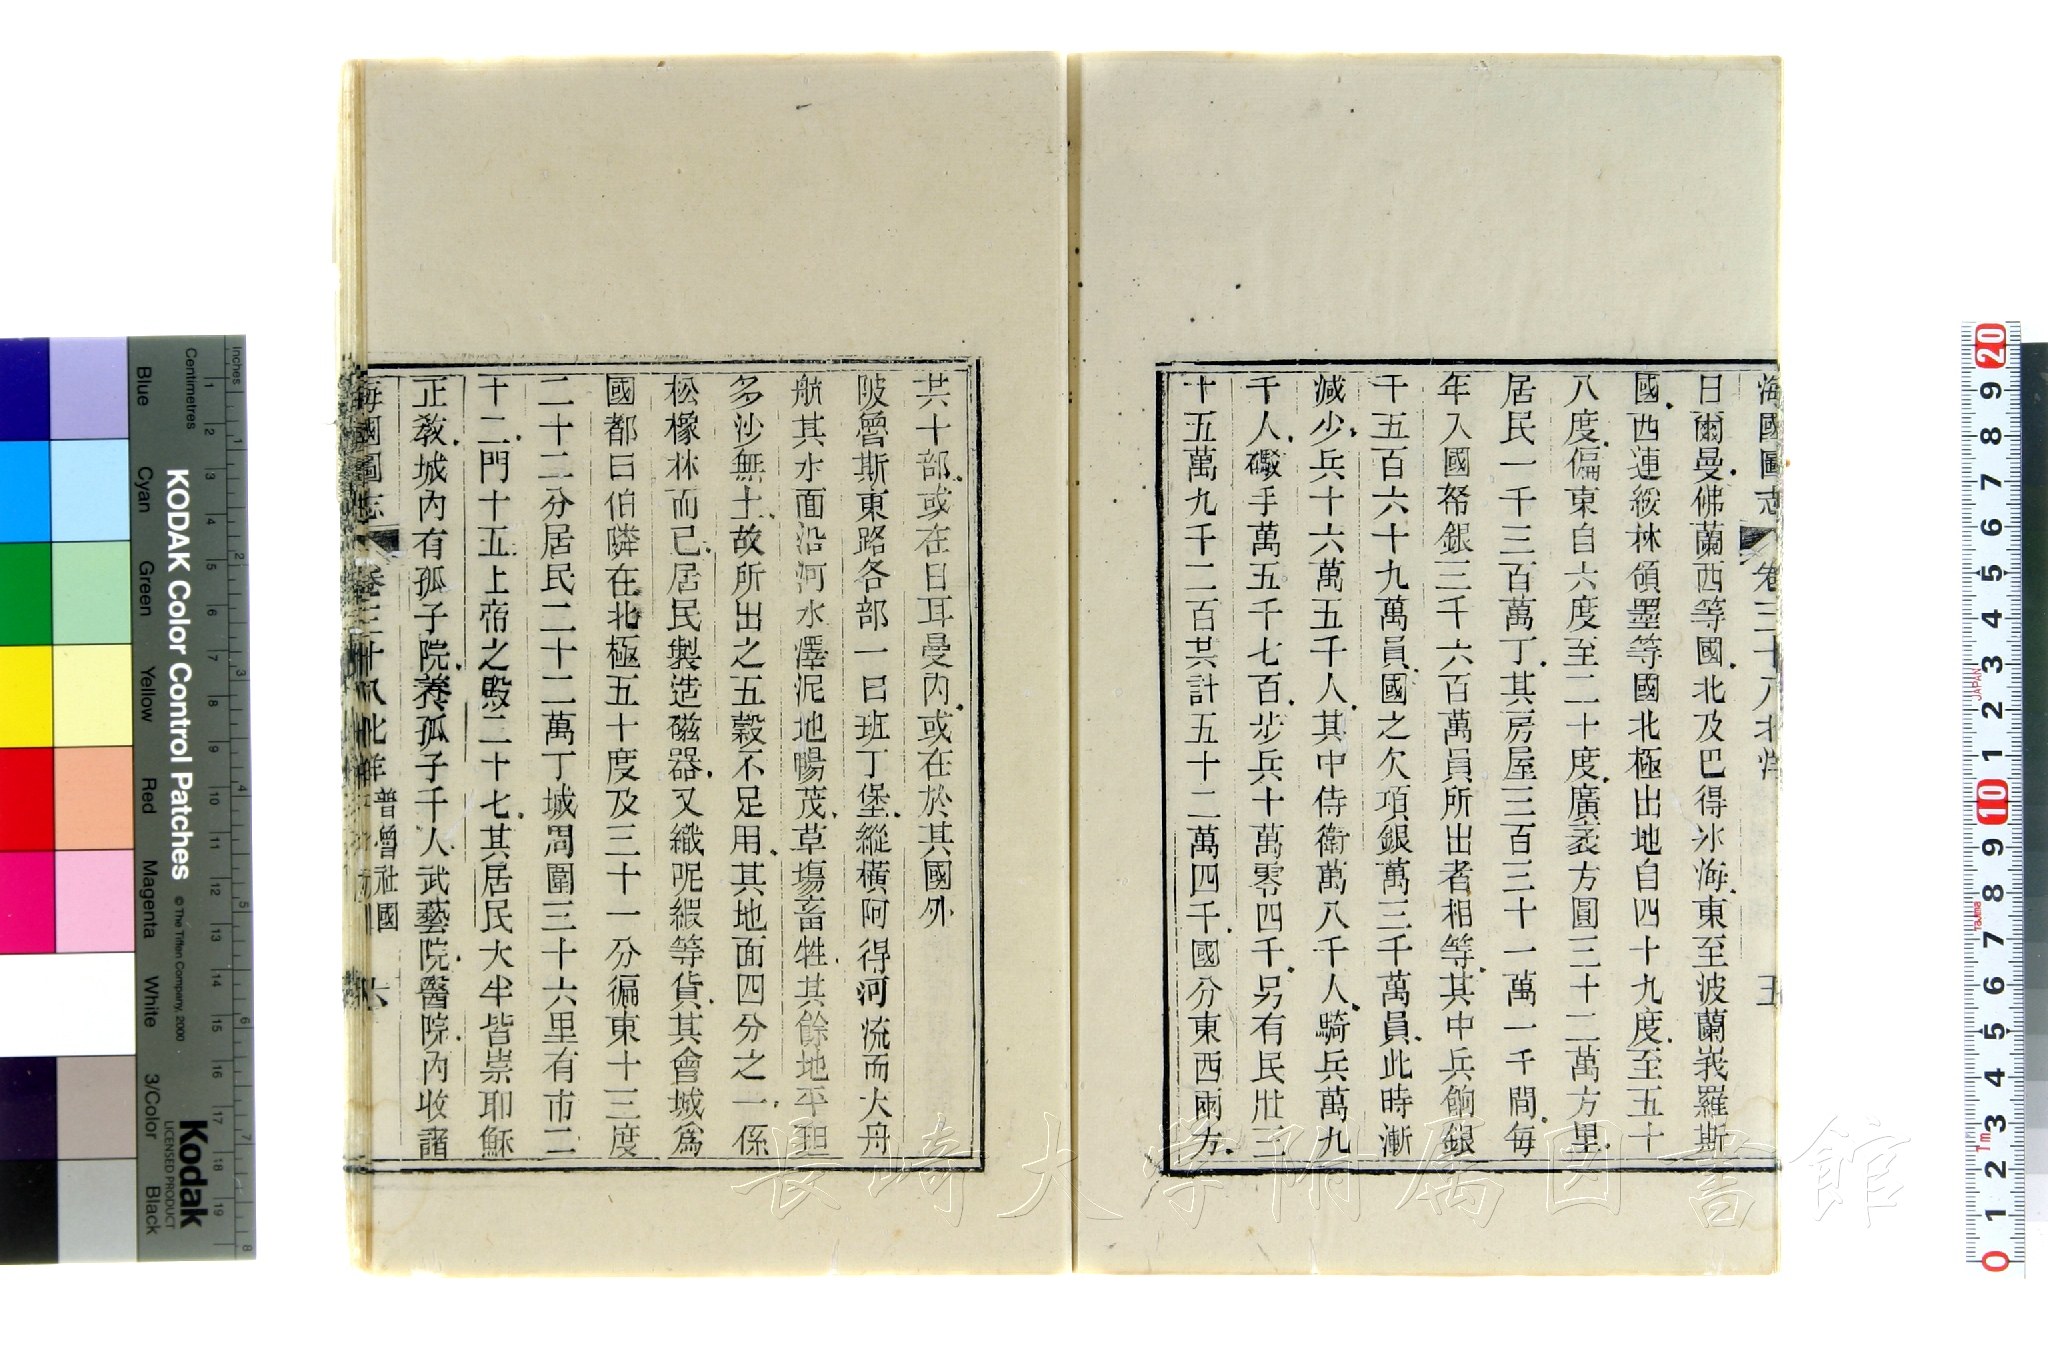 海國圖志 卷三十八 北洋 五
日爾曼佛蘭西等國北及巴得冰海東至波蘭峩羅斯
國西連綏林領墨等國北極出地自四十九度至五十
八度偏東自六度至二十度廣袤方圓三十二萬方里
居民一千三百萬丁其房屋三百三十一萬一千間每
年入國帑銀三千六百萬員所出者相等其中兵餉銀
千五百六十九萬員國之欠項銀萬三千萬員此時漸
減少兵十六萬五千人其中侍衛萬八千人騎兵萬九
千人礮手萬五千七百步兵十萬零四千另有民壯三
十五萬九千二百共計五十二萬四千國分東西兩方
共十部或在日耳曼內或在於其國外
陂魯斯東路各部一曰班丁堡縱橫阿得河流而大舟
航其水面沿河水澤泥地暢茂草塲畜牲其餘地平坦
多沙無土故所出之五穀不足用其地面四分之一係
松橡林而已居民製造磁器又織呢緞等貨其會城為
國都曰伯隣在北極五十度及三十一分徧東十三度
二十二分居民二十二萬丁城周圍三十六里有市二
十二門十五上帝之殿二十七其居民大半皆崇耶穌
正敎城內有孤子院養孤子千人武藝院醫院內收諸
海國圖志 卷三十八 北洋 普魯社國 六
長崎大学附属図書館
KODAK Color Control Patches
© The Tiffen Company, 2000
Kodak
LICENSED PRODUCT
Inches
Centimetres
Blue
Cyan
Green
Yellow
Red
Magenta
White
3/Color
Black
1 2 3 4 5 6 7 8
1 2 3 4 5 6 7 8 9 10 11 12 13 14 15 16 17 18 19
0 1 2 3 4 5 6 7 8 9 10 1 2 3 4 5 6 7 8 9 20
JAPAN